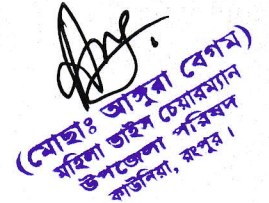 (মোছাঃ আঙ্গুরা বেগম)
মহিলা ভাইস চেয়ারম্যান
উপজেলা পরিষদ
কাউনিয়া, রংপুর।